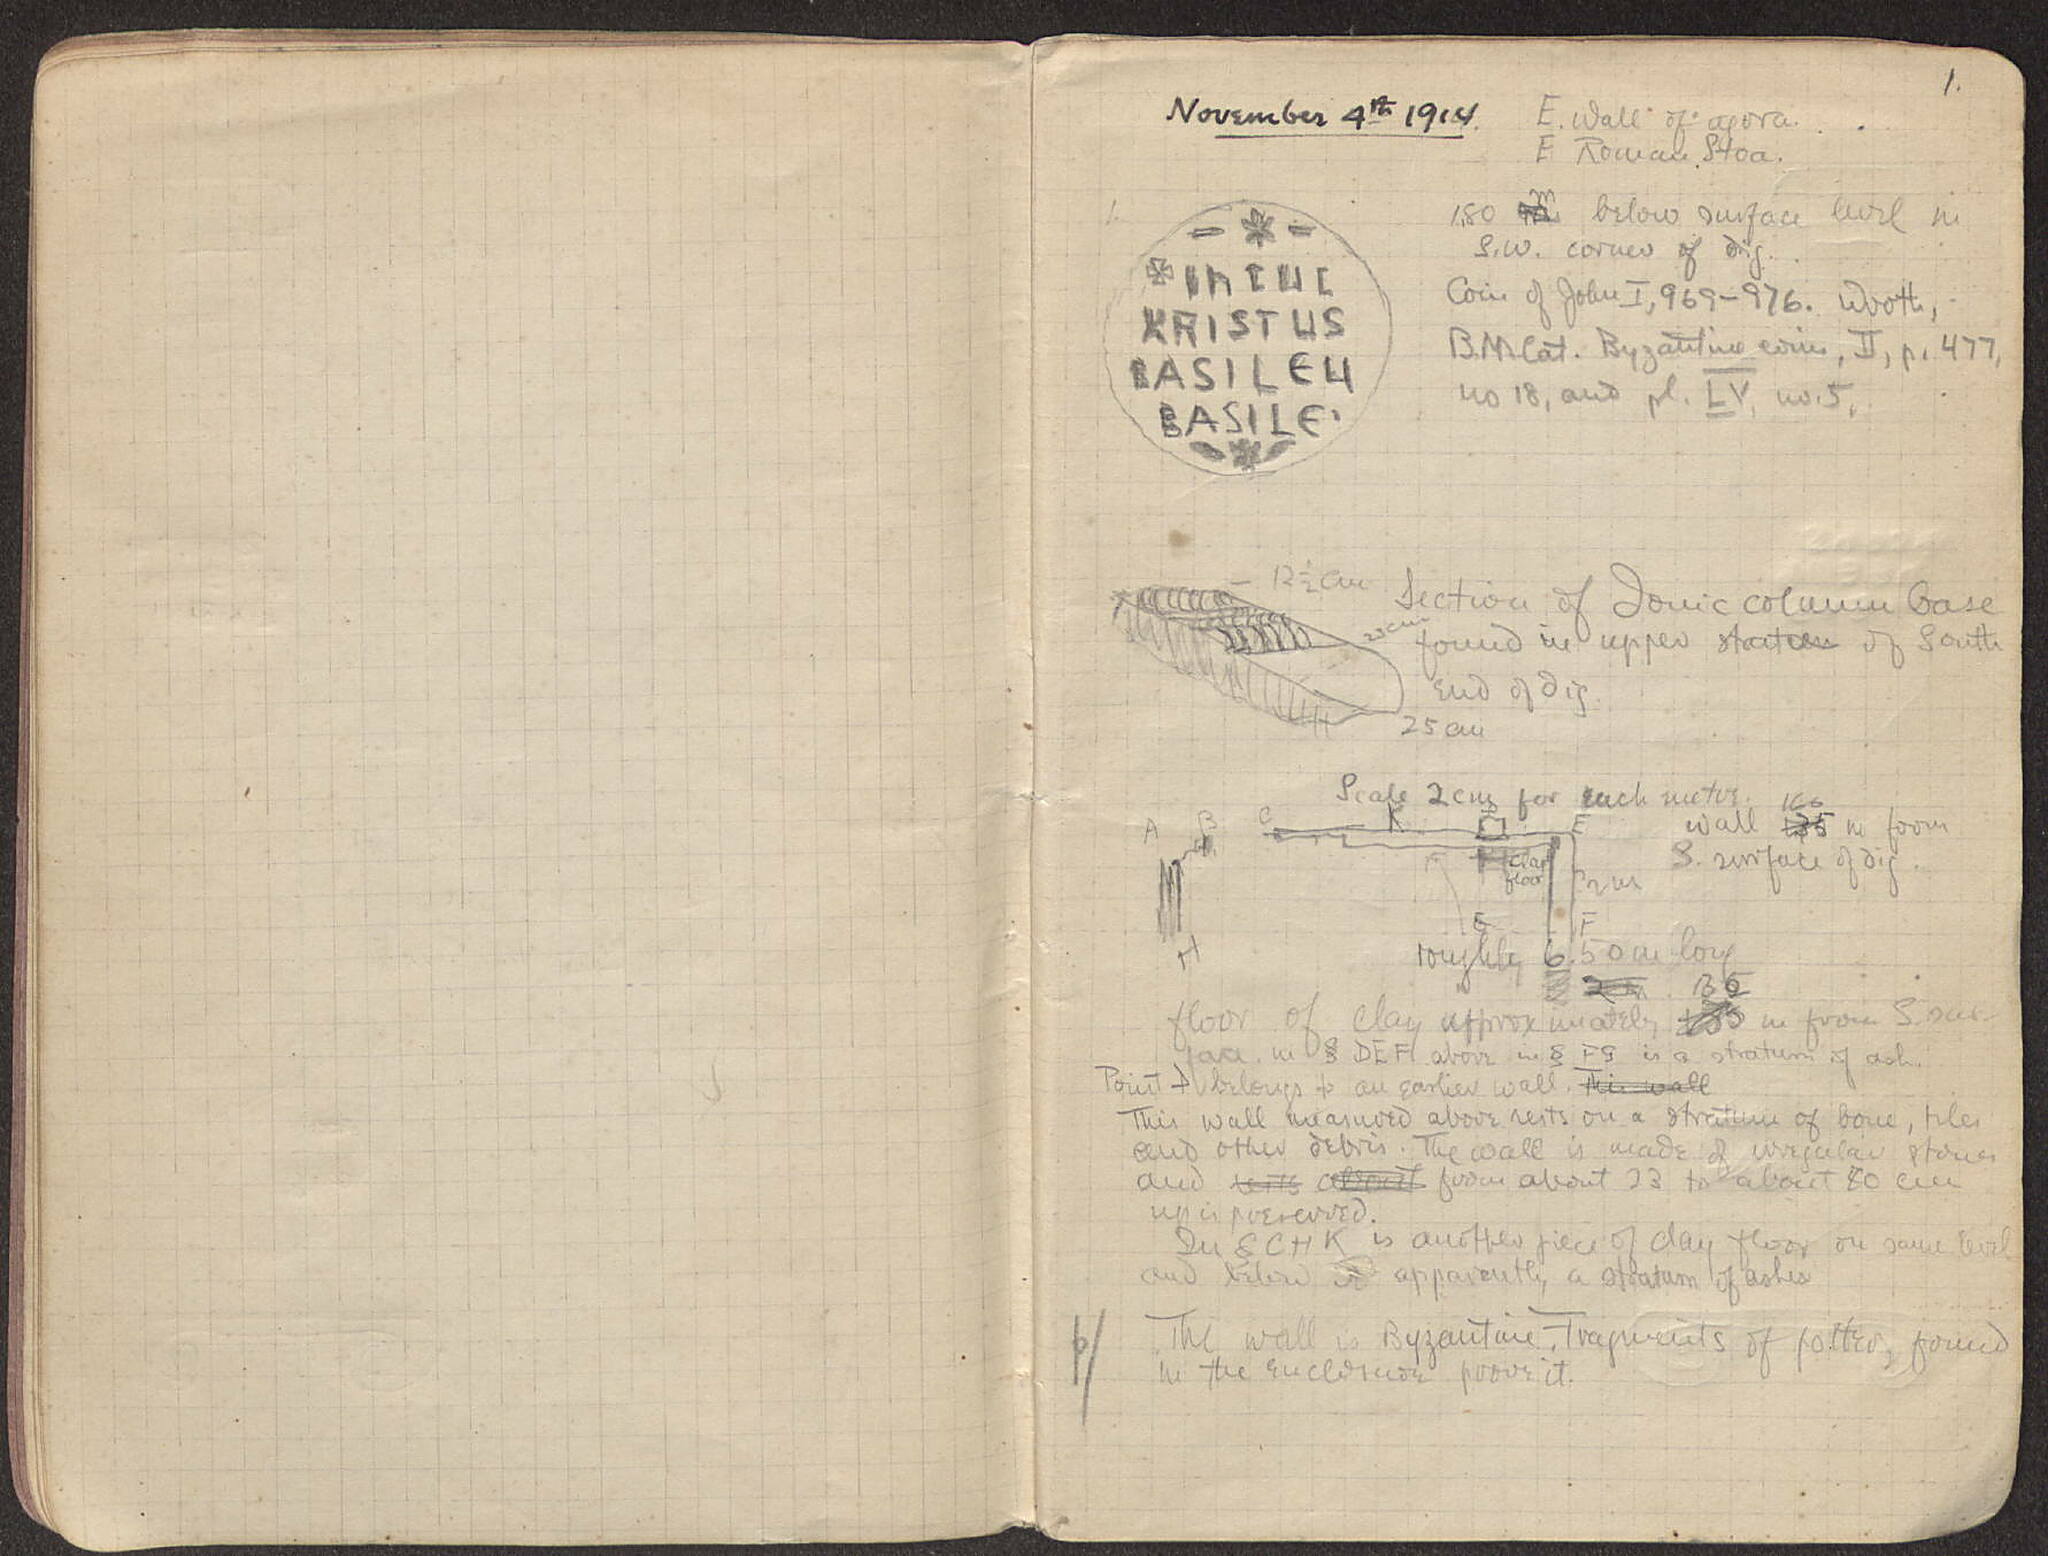 1.
November 4th 1914.
E. Wall of agora.
E Roman Stoa.
1.
IHSUS
KRISTUS
BASILEU
BASILE
1.80 m below surface level in
S.W. corner of dig.
Coin of John I, 969-976. Wroth,
B.M. Cat. Byzantine coins, II, p. 477,
no 18, and pl. LV, no. 5.
12½ cm
23 cm
25 cm
Section of Ionic column base
found in upper stratum of South
end of dig.
Scale 2 cm for each metre.
A B C K D E
wall m from
S. surface of dig.
clay
floor
2 m
G F
H
roughly 6.50 m long
floor of clay approximately m from S. sur-
face in § DEF above in § FG is a stratum of ash.
Point D belongs to an earlier wall. This wall
This wall measured above rests on a stratum of bone, tiles
and other debris. The wall is made of irregular stones
and about from about 23 to about 80 cm
up is preserved.
In § CHK is another piece of clay floor on same level
and below it apparently a stratum of ashes
The wall is Byzantine, Fragments of pottery found
in the enclosure prove it.